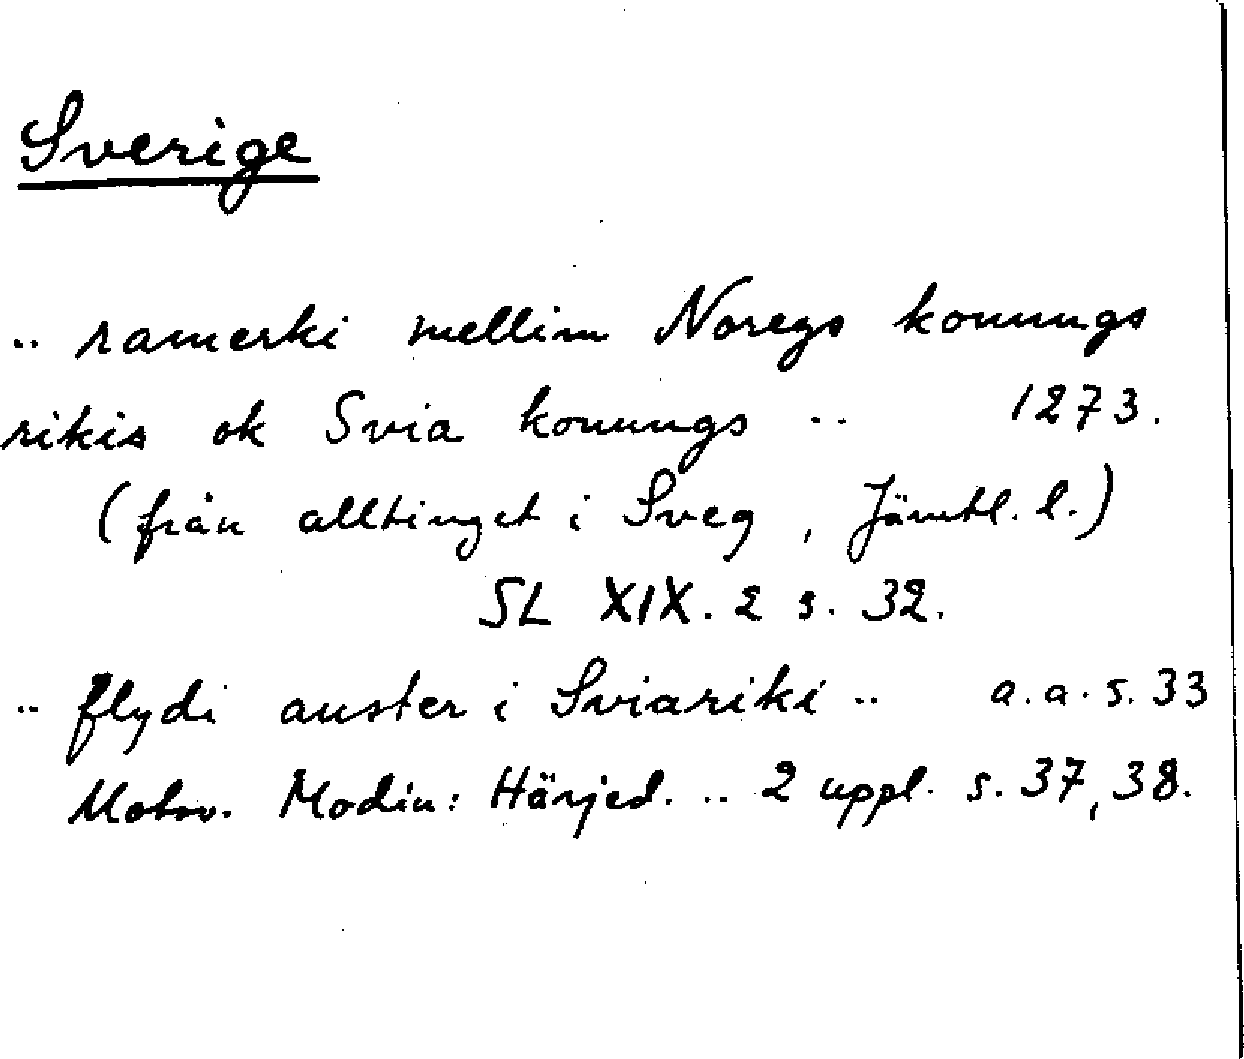 Sverige
.. ramerki mellim Noregs konungs
rikis ok Svia konungs .. 1273.
(från alltinget i Sveg, Jämtl. l.)
SL XIX. 2 s. 32.
.. flydi auster i Sviariki .. a.a. s. 33
Motsv. Modin: Härjed. .. 2 uppl. s. 37, 38.